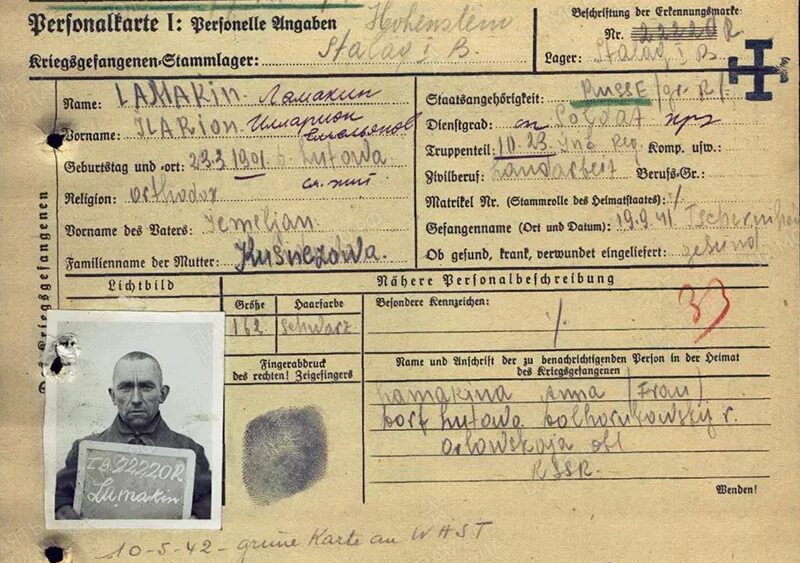 Personalkarte I: Personelle Angaben
Hohenstein
Kriegsgefangenen-Stammlager: Stalag I B.
Beschriftung der Erkennungsmarke:
Nr. 22220 R
Lager: Stalag I B
Des Kriegsgefangenen
Name: LAMAKIN Ламакин
Vorname: ILARION Иларион
Емельянов
Geburtstag und -ort: 23.3.1901
Religion: Orthodox
Vorname des Vaters: Jemeljan
Familienname der Mutter: Kusnezowa.
Staatsangehörigkeit: RUSSE
Dienstgrad: Soldat
Truppenteil: 10. 23. Inf. Reg. Komp. usw.:
Zivilberuf: Landarbeit Berufs-Gr.:
Matrikel Nr. (Stammrolle des Heimatstaates): ./.
Gefangennahme (Ort und Datum): 19.9.41
Ob gesund, krank, verwundet eingeliefert: gesund
Lichtbild
Nähere Personalbeschreibung
Größe Haarfarbe
162 schwarz
Besondere Kennzeichen:
./.
33
Fingerabdruck
des rechten! Zeigefingers
Name und Anschrift der zu benachrichtigenden Person in der Heimat
des Kriegsgefangenen
Lamakina Anna (Frau)
Dorf
Orlowskaja obl
RSSR.
Wenden!
IB 22220R
Lamakin
10-5-42 - grüne Karte an WAST